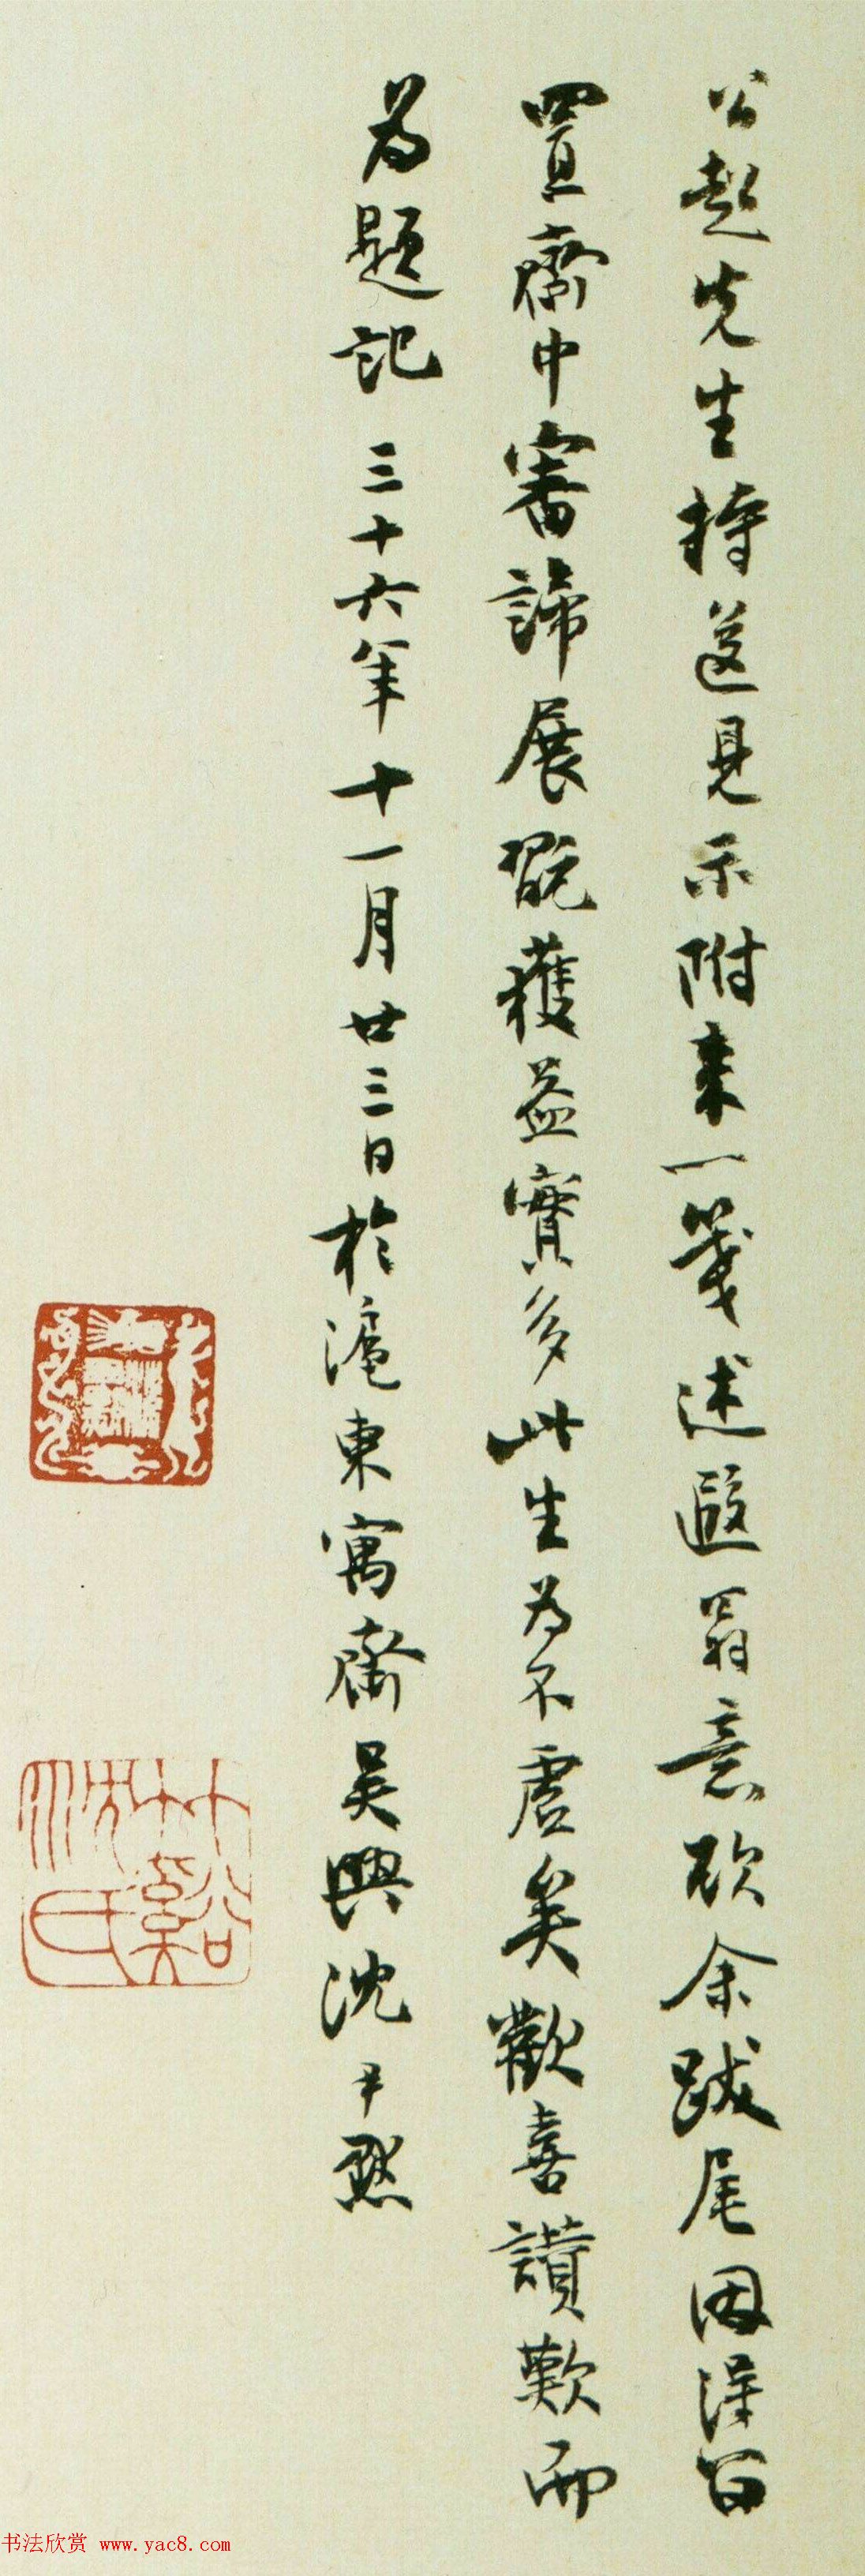 公起先生持送見示附來一箋述遐翁意欲余跋尾因得留
置齋中審諦展翫獲益實多此生為不虛矣歡喜讚歎而
為題記 三十六年十一月廿三日於滬東寓齋吳興沈尹默
竹谿沈氏
书法欣赏 www.yac8.com